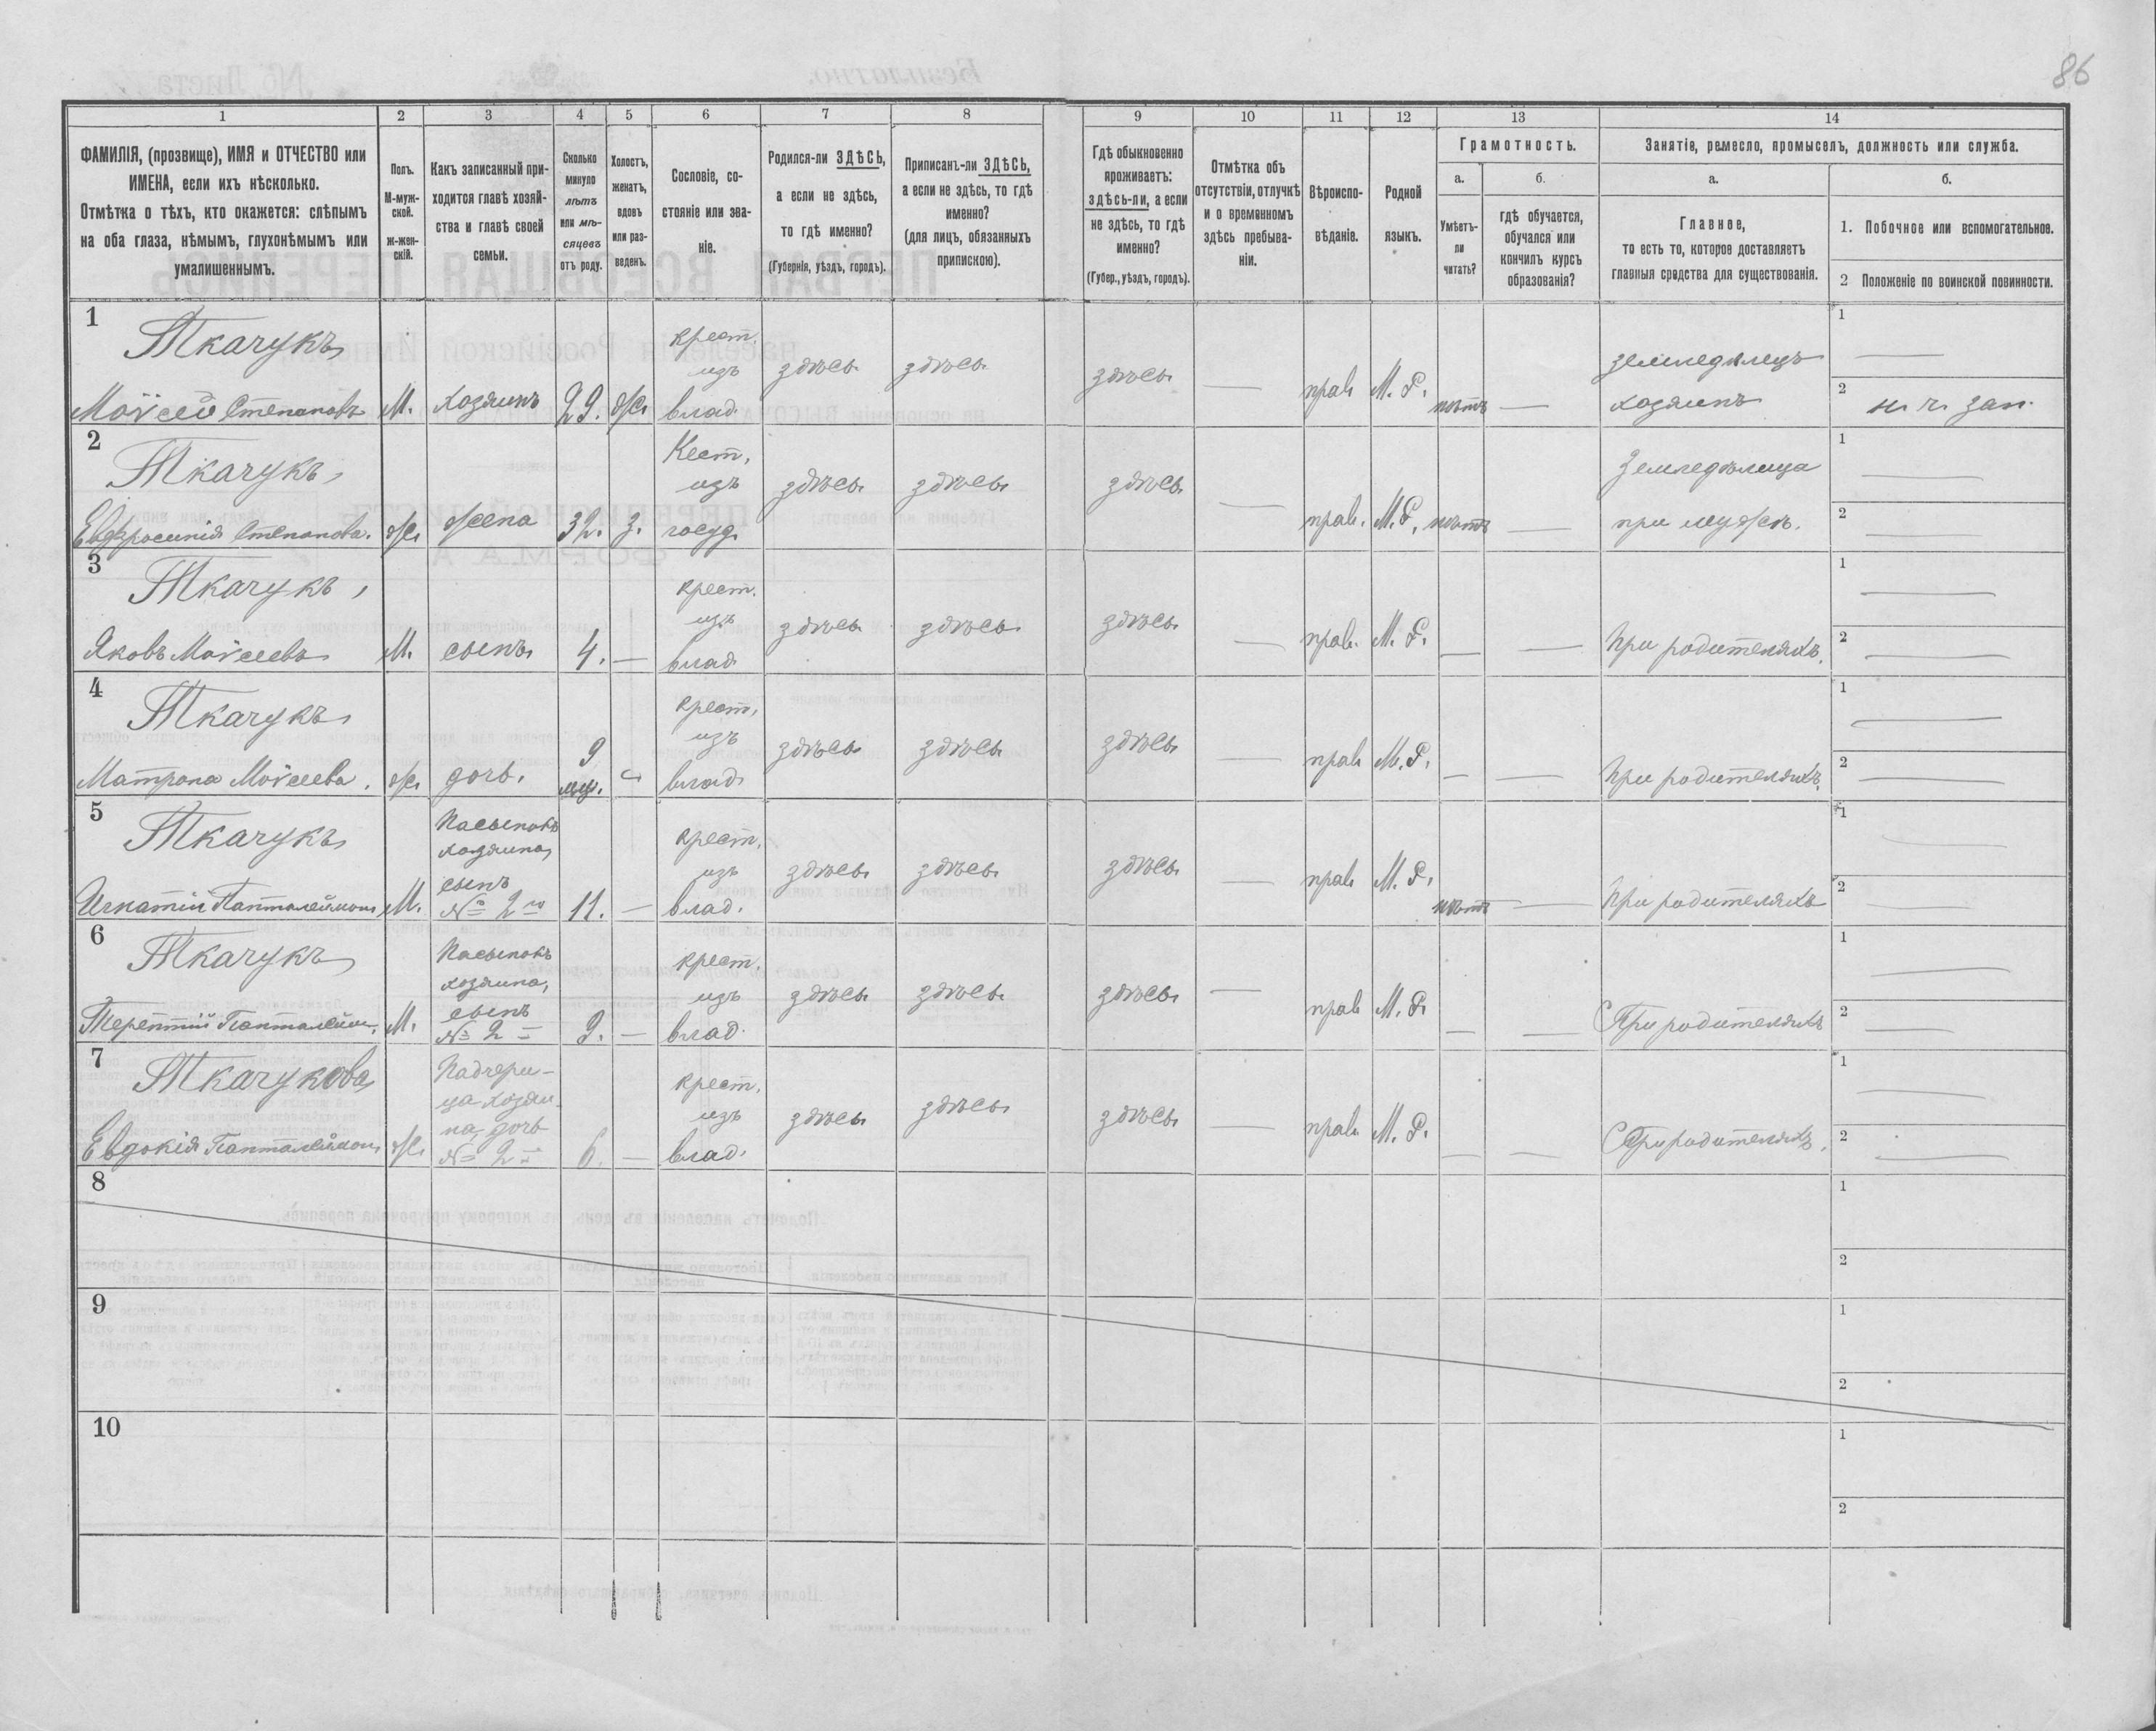 86
1 2 3 4 5 6 7 8 9 10 11 12 13 14
ФАМИЛІЯ, (прозвище), ИМЯ и ОТЧЕСТВО или
ИМЕНА, если ихъ нѣсколько.
Отмѣтка о тѣхъ, кто окажется: слѣпымъ
на оба глаза, нѣмымъ, глухонѣмымъ или
умалишеннымъ.
Полъ.
М-муж-
ской.
Ж-жен-
скій.
Какъ записанный при-
ходится главѣ хозяй-
ства и главѣ своей
семьи.
Сколько
минуло
лѣтъ
или мѣ-
сяцевъ
отъ роду.
Холостъ,
женатъ,
вдовъ
или раз-
веденъ.
Сословіе, со-
стояніе или зва-
ніе.
Родился-ли ЗДѢСЬ,
а если не здѣсь,
то гдѣ именно?
(Губернія, уѣздъ, городъ).
Приписанъ-ли ЗДѢСЬ,
а если не здѣсь, то гдѣ
именно?
(для лицъ, обязанныхъ
припискою).
Гдѣ обыкновенно
проживаетъ:
здѣсь-ли, а если
не здѣсь, то гдѣ
именно?
(Губер., уѣздъ, городъ).
Отмѣтка объ
отсутствіи, отлучкѣ
и о временномъ
здѣсь пребыва-
ніи.
Вѣроиспо-
вѣданіе.
Родной
языкъ.
Грамотность.
а.
Умѣетъ-
ли
читать?
б.
гдѣ обучается,
обучался или
кончилъ курсъ
образованія?
Занятіе, ремесло, промыселъ, должность или служба.
а.
Главное,
то есть то, которое доставляетъ
главныя средства для существованія.
б.
1. Побочное или вспомогательное.
2 Положеніе по воинской повинности.
1
Ткачукъ
Моѵсей Степановъ
М.
хозяинъ
29.
ж.
крест.
изъ
влад.
здѣсь
здѣсь
здѣсь
—
прав
М. Р.
нѣтъ
—
земледѣлецъ
хозяинъ
1 —
2 н. ч. зап.
2
Ткачукъ,
Евфросинія Степанова.
ж.
жена
32.
з.
Кест,
изъ
госуд.
здѣсь
здѣсь
здѣсь
—
прав.
М. Р.
нѣтъ
—
Земледѣлица
при мужѣ.
1 —
2 —
3
Ткачукъ,
Яковъ Моѵсеевъ
М.
сынъ
4.
—
крест.
изъ
влад.
здѣсь
здѣсь
здѣсь
—
прав.
М. Р.
—
—
При родителяхъ.
1 —
2 —
4
Ткачукъ
Матрона Моѵсеева.
ж.
дочь.
9
мѣц.
крест,
изъ
влад.
здѣсь
здѣсь
здѣсь
—
прав
М. Р.
—
—
При родителяхъ.
1 —
2 —
5
Ткачукъ
Игнатій Пантолеймон
М.
Пасынокъ
хозяина,
сынъ
№ 2го
11.
—
крест.
изъ
влад.
здѣсь
здѣсь
здѣсь
—
прав
М. Р.
нѣтъ
—
При родителяхъ
1 —
2 —
6
Ткачукъ
Терентій Пантолейм.
М.
Пасынокъ
хозяина,
сынъ
№ 2
9.
—
крест.
изъ
влад.
здѣсь
здѣсь
здѣсь
—
прав
М. Р.
—
—
При родителяхъ
1 —
2 —
7
Ткачукова
Евдокія Пантолеймон
ж.
Падчери-
ца хозяи-
на, дочь
№ 2
6.
—
крест.
изъ
влад.
здѣсь
здѣсь
здѣсь
—
прав.
М. Р.
—
—
При родителяхъ.
1 —
2 —
8
1
2
9
1
2
10
1
2